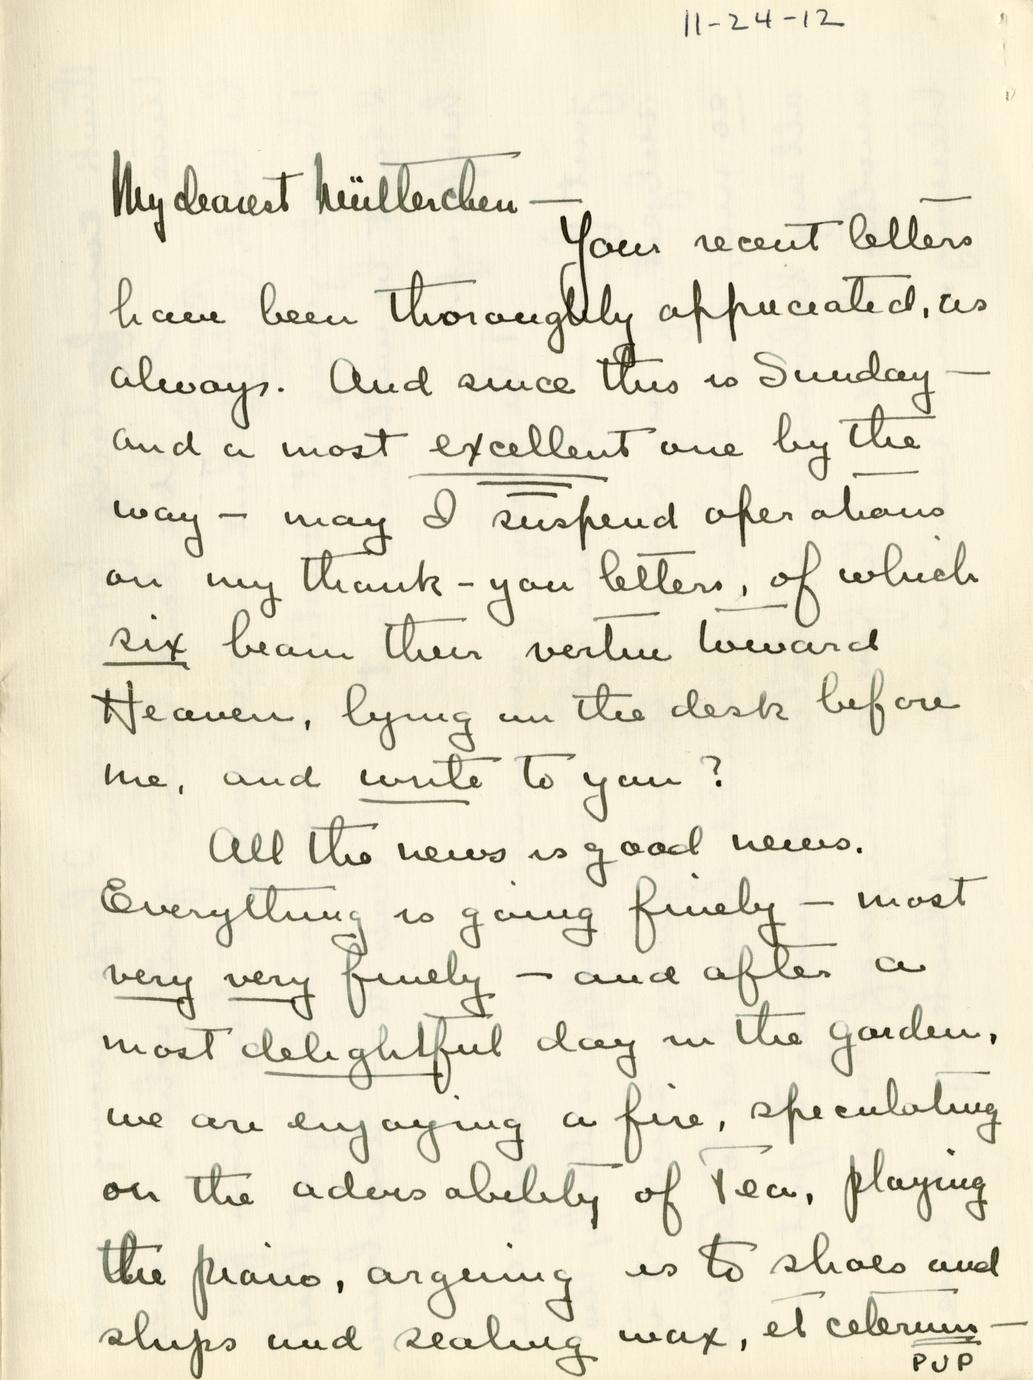 11-24-12
My dearest Mütterchen —
Your recent letters
have been thoroughly appreciated, as
always. And since this is Sunday —
and a most excellent one by the
way — may I suspend operations
on my thank-you letters, of which
six beam their vertue toward
Heaven, lying on the desk before
me, and write to you?
All the news is good news.
Everything is going finely — most
very very finely — and after a
most delightful day in the garden,
we are enjoying a fire, speculating
on the advisability of Tea, playing
the piano, argueing as to shoes and
ships and sealing wax, et ceterum —
PUP